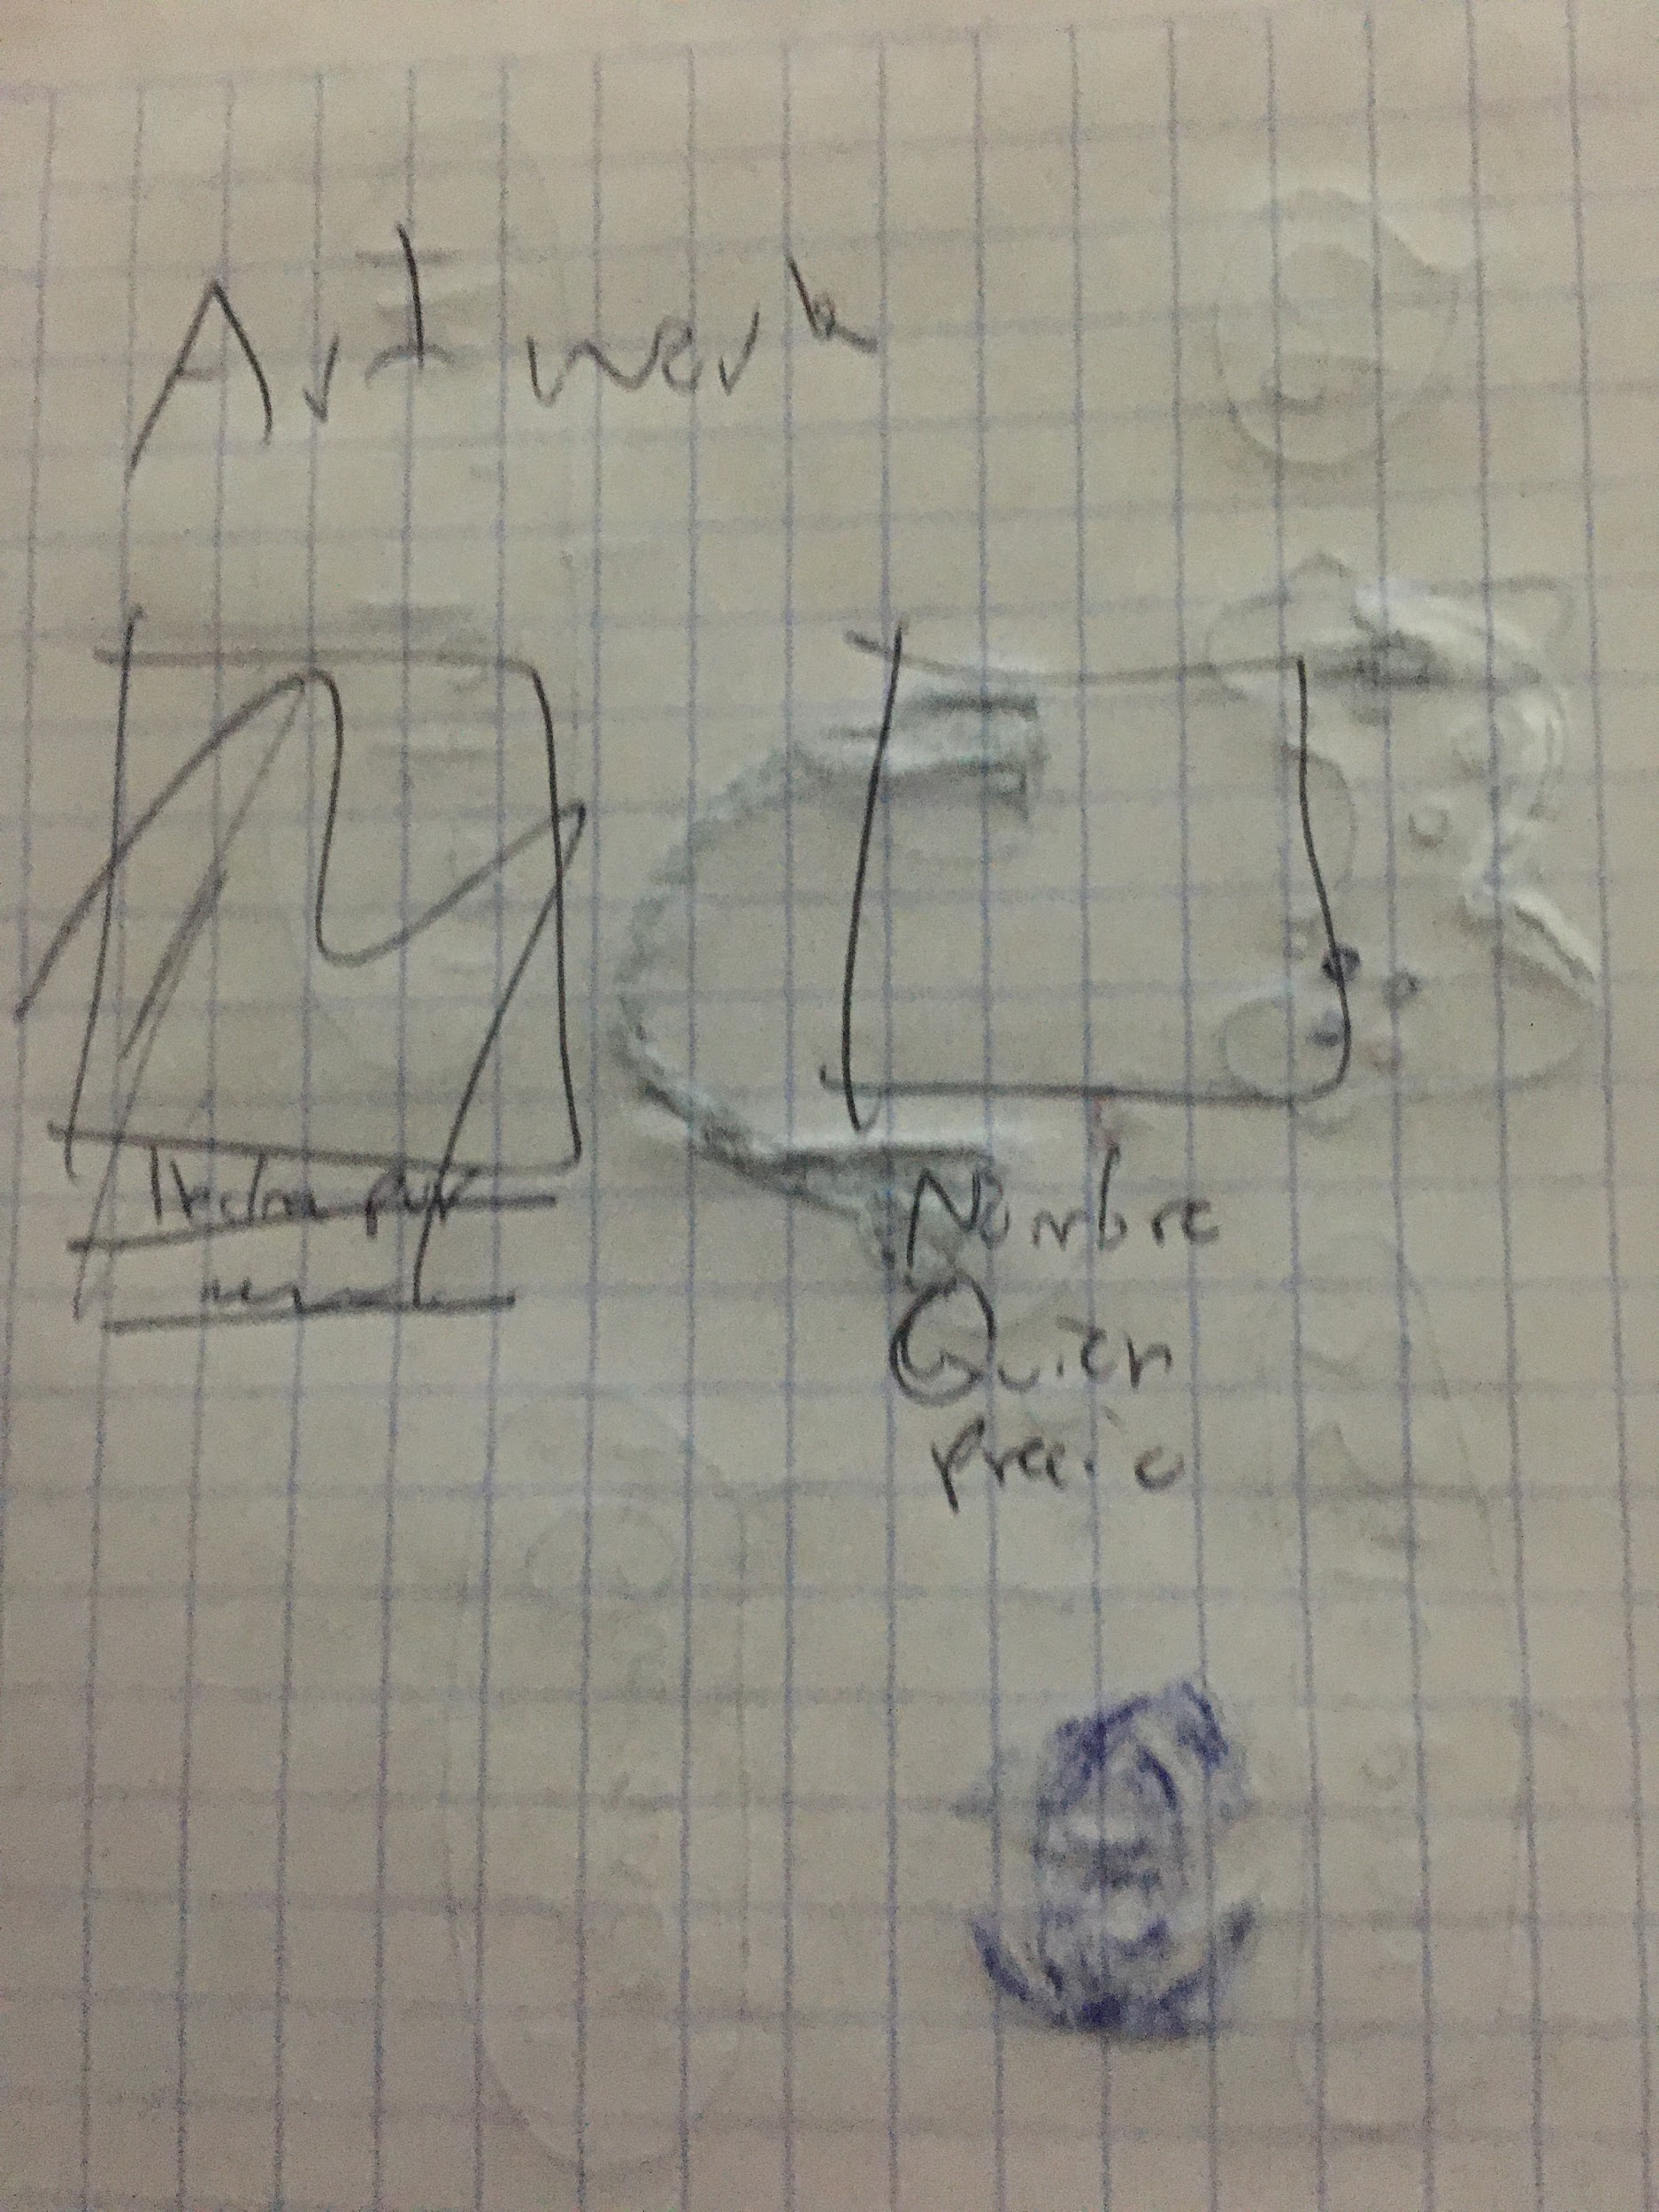 Artwork
Hecho por
Nombre
Quien
precio